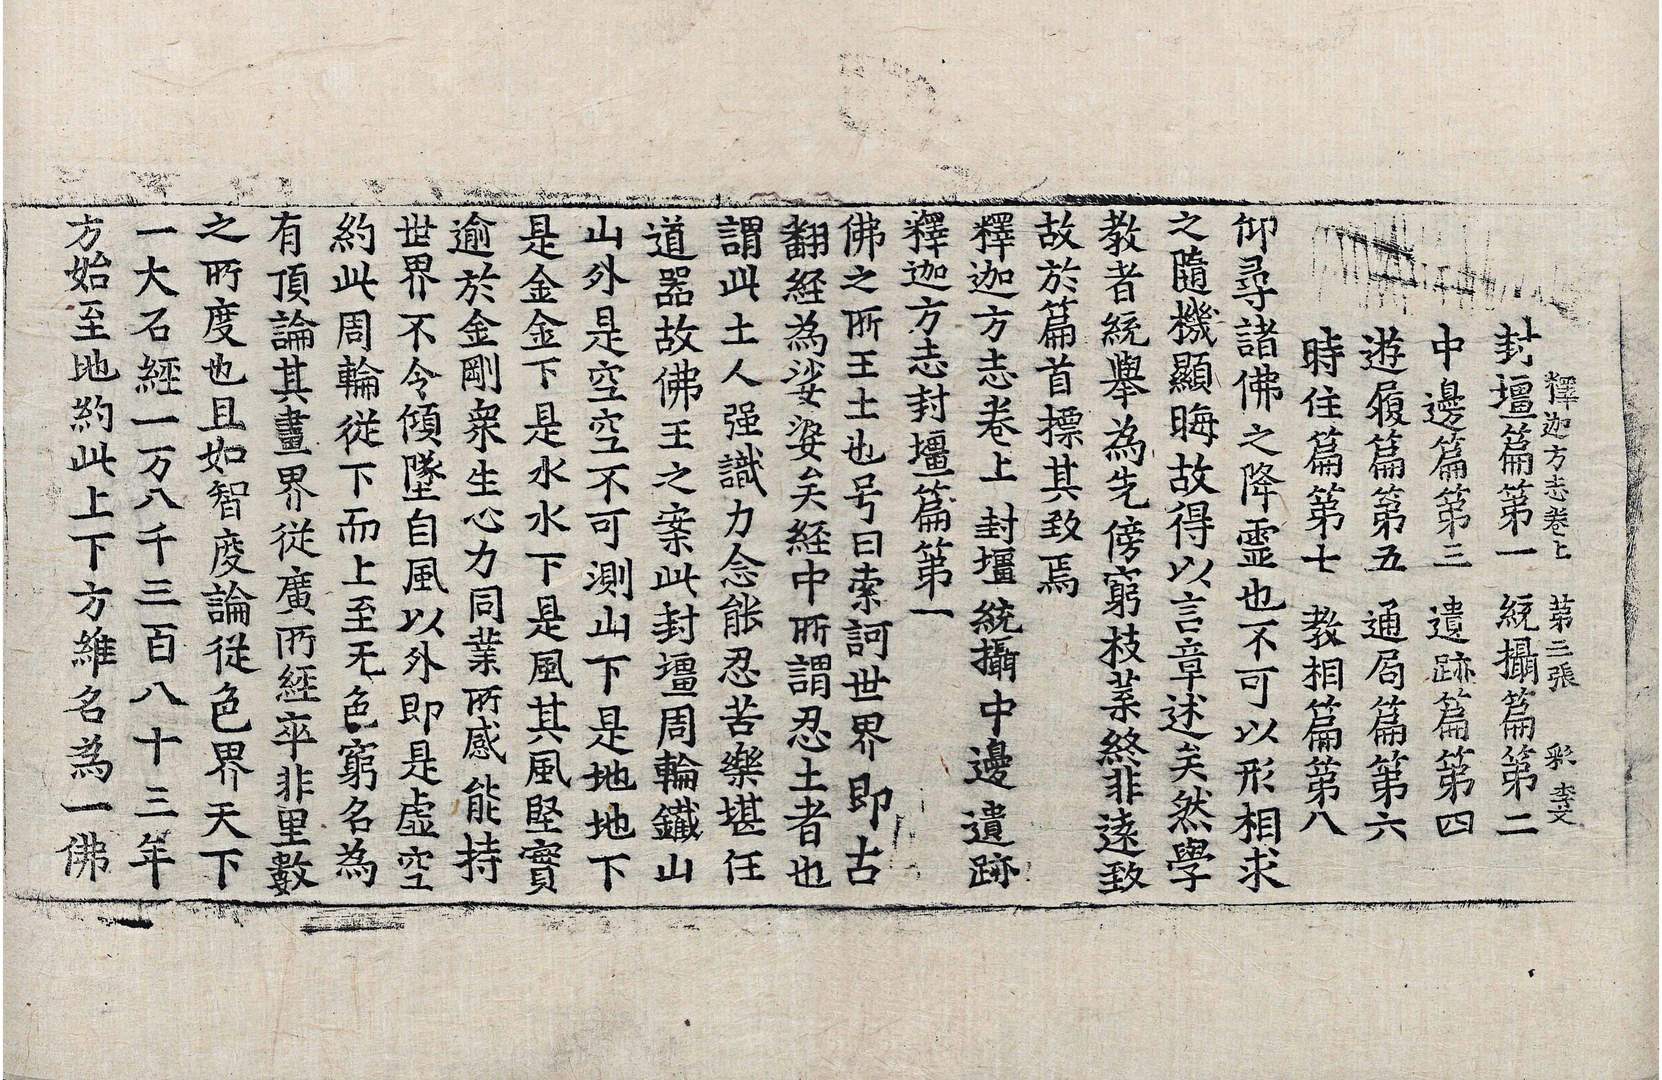 釋迦方志卷上 第三張 彩 李文
封壃篇第一 統攝篇第二
中邊篇第三 遺跡篇第四
遊履篇第五 通局篇第六
時住篇第七 教相篇第八
仰尋諸佛之降靈也不可以形相求
之隨機顯晦故得以言章述矣然學
教者統舉為先傍窮枝葉終非遠致
故於篇首摽其致焉
釋迦方志卷上 封壃 統攝 中邊 遺跡
釋迦方志封壃篇第一
佛之所王土也号曰索訶世界即古
翻経為娑婆矣経中所謂忍土者也
謂此土人强識力念能忍苦樂堪任
道器故佛王之案此封壃周輪鐵山
山外是空空不可測山下是地地下
是金金下是水水下是風其風堅實
逾於金剛衆生心力同業所感能持
世界不令傾墜自風以外即是虛空
約此周輪從下而上至无色窮名為
有頂論其畫界從廣所經卒非里數
之所度也且如智度論從色界天下
一大石經一万八千三百八十三年
方始至地約此上下方維名為一佛